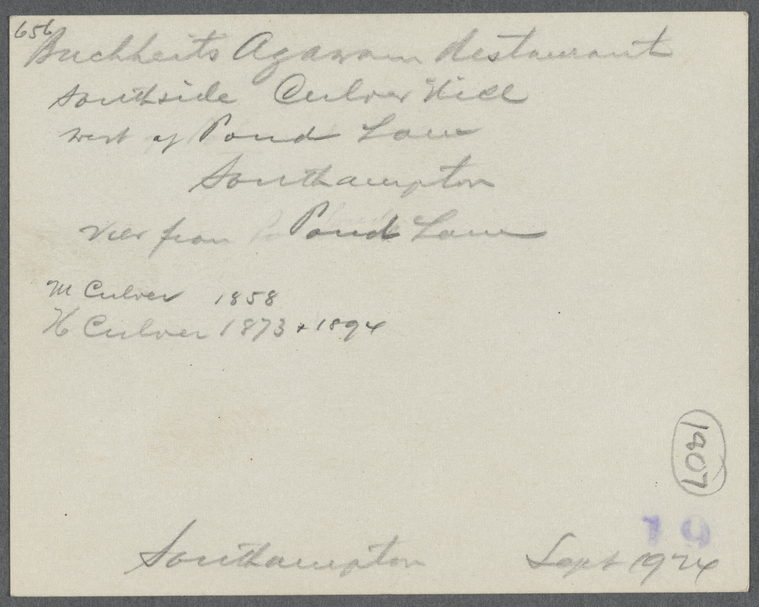 656
Buchheits Agawam Restaurant
Southside Culver Hill
West of Pond Lane
Southampton
View from Pond Lane
M Culver 1858
H Culver 1873 + 1894
1907
19
Southampton Sept 1924